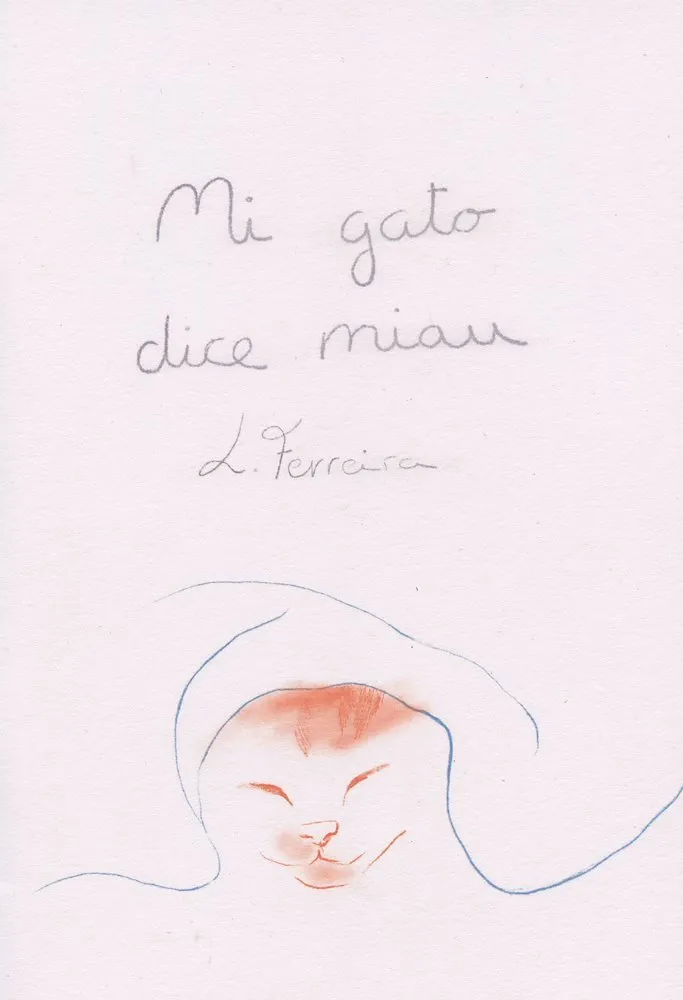 Mi gato
dice miau
L. Ferreira